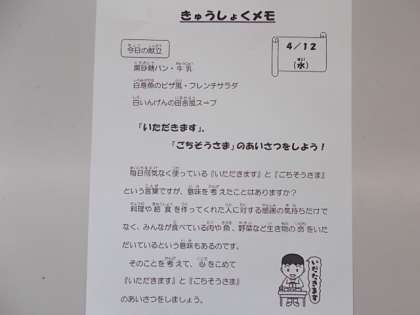 きゅうしょくメモ
今日の献立
4/12
(水)
黒砂糖パン・牛乳
白身魚のピザ風・フレンチサラダ
白いんげんの田舎風スープ
「いただきます」、
「ごちそうさま」のあいさつをしよう!
毎日何気なく使っている『いただきます』と『ごちそうさま』
という言葉ですが、意味を考えたことはありますか?
料理や給食を作ってくれた人に対する感謝の気持ちだけで
なく、みんなが食べている肉や魚、野菜など生き物の命をいた
だいているという意味もあるのです。
そのことを考えて、心をこめて
『いただきます』と『ごちそうさま』
のあいさつをしましょう。
いただきます